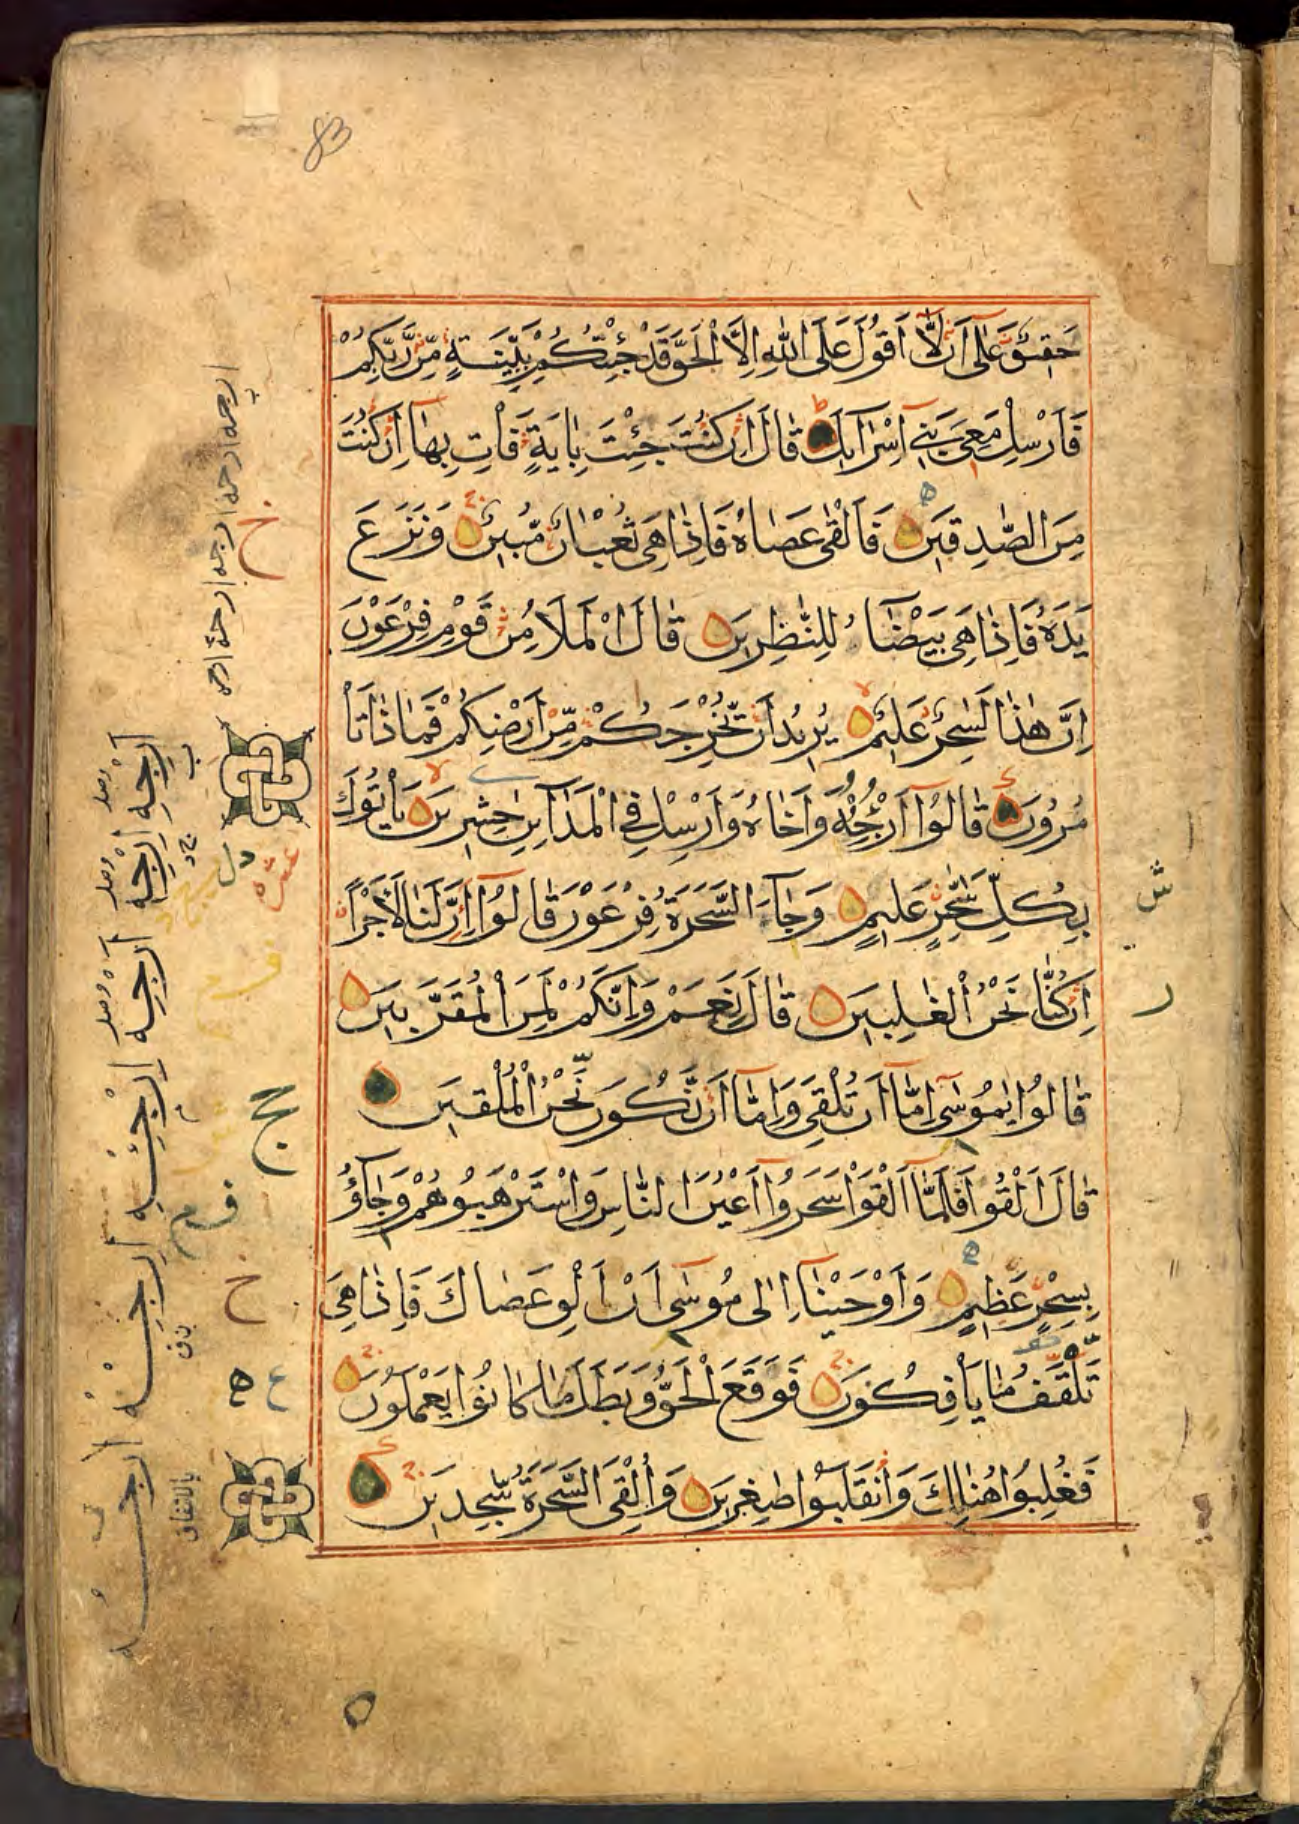 83
حَقِيقٌ عَلَىٰ أَنْ لَّا أَقُولَ عَلَى اللَّهِ إِلَّا الْحَقَّ قَدْ جِئْتُكُمْ بِبَيِّنَةٍ مِّن رَّبِّكُمْ
فَأَرْسِلْ مَعِيَ بَنِي إِسْرَآئِيلَ قَالَ إِن كُنتَ جِئْتَ بِآيَةٍ فَأْتِ بِهَا إِن كُنتَ
مِنَ الصّٰدِقِينَ فَأَلْقَىٰ عَصَاهُ فَإِذَا هِيَ ثُعْبَانٌ مُّبِينٌ وَنَزَعَ
يَدَهُ فَإِذَا هِيَ بَيْضَآءُ لِلنّٰظِرِينَ قَالَ الْمَلَأُ مِن قَوْمِ فِرْعَوْنَ
إِنَّ هٰذَا لَسٰحِرٌ عَلِيمٌ يُرِيدُ أَن يُّخْرِجَكُم مِّنْ أَرْضِكُمْ فَمَاذَا تَأْ
مُرُونَ قَالُوا أَرْجِئْهُ وَأَخَاهُ وَأَرْسِلْ فِي الْمَدَآئِنِ حٰشِرِينَ يَأْتُوكَ
بِكُلِّ سَحّٰرٍ عَلِيمٍ وَجَآءَ السَّحَرَةُ فِرْعَوْنَ قَالُوا إِنَّ لَنَا لَأَجْرًا
إِن كُنَّا نَحْنُ الْغٰلِبِينَ قَالَ نَعَمْ وَإِنَّكُمْ لَمِنَ الْمُقَرَّبِينَ
قَالُوا يٰمُوسَىٰ إِمَّا أَن تُلْقِيَ وَإِمَّا أَن نَّكُونَ نَحْنُ الْمُلْقِينَ
قَالَ أَلْقُوا فَلَمَّا أَلْقَوْا سَحَرُوا أَعْيُنَ النَّاسِ وَاسْتَرْهَبُوهُمْ وَجَآؤُ
بِسِحْرٍ عَظِيمٍ وَأَوْحَيْنَا إِلَىٰ مُوسَىٰ أَنْ أَلْقِ عَصَاكَ فَإِذَا هِيَ
تَلْقَفُ مَا يَأْفِكُونَ فَوَقَعَ الْحَقُّ وَبَطَلَ مَا كَانُوا يَعْمَلُونَ
فَغُلِبُوا هُنَالِكَ وَانقَلَبُوا صٰغِرِينَ وَأُلْقِيَ السَّحَرَةُ سٰجِدِينَ
عشر
بالاتفاق